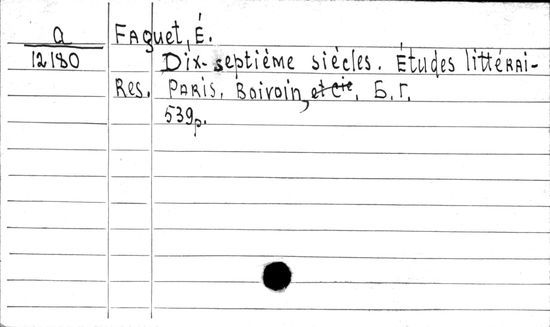 a
12180
Faguet, É.
Dix-septième siècles. Études littérai-
res. Paris, Boivoin, et Cie, Б.г.
539p.